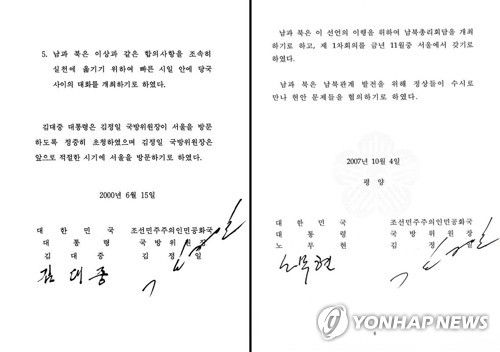 5. 남과 북은 이상과 같은 합의사항을 조속히
실천에 옮기기 위하여 빠른 시일 안에 당국
사이의 대화를 개최하기로 하였다.
김대중 대통령은 김정일 국방위원장이 서울을 방문
하도록 정중히 초청하였으며 김정일 국방위원장은
앞으로 적절한 시기에 서울을 방문하기로 하였다.
2000년 6월 15일
대 한 민 국 조선민주주의인민공화국
대 통 령 국 방 위 원 장
김 대 중 김 정 일
김대중
남과 북은 이 선언의 이행을 위하여 남북총리회담을 개최
하기로 하고, 제 1차회의를 금년 11월중 서울에서 갖기로
하였다.
남과 북은 남북관계 발전을 위해 정상들이 수시로
만나 현안 문제들을 협의하기로 하였다.
2007년 10월 4일
평 양
대 한 민 국 조선민주주의인민공화국
대 통 령 국 방 위 원 장
노 무 현 김 정 일
노무현
YONHAP NEWS